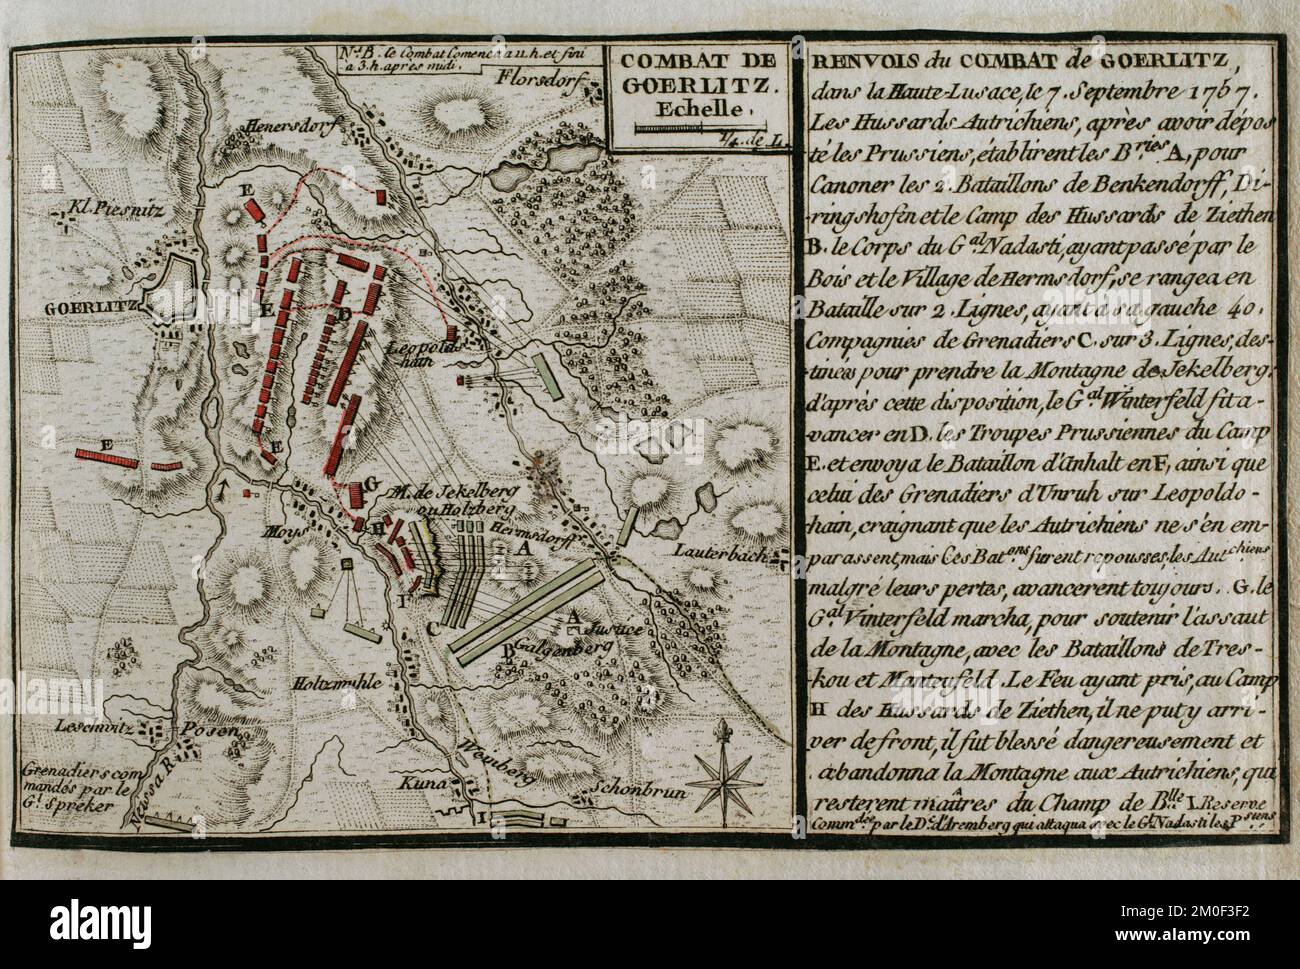 Nª B. Le Combat Comenca a 11. h. et fini
a 3. h. après midi.
COMBAT DE
GOERLITZ.
Echelle.
¼. de L.
Florsdorf
Henersdorf
Kl. Piesnitz
GOERLITZ
E
E
E
E
E
D
Leopolds
hain
G
M. de Jekelberg
ou Holzberg
H
Moys
Hermsdorff
A
Lauterbach
F
C
A
Justice
B
Galgenberg
Holtzmuhle
Leschwitz
Posen
Grenadiers com
mandés par le
Gˡ. Spreker
Neissa R.
Weinberg
Kuna
Schonbrun
I
RENVOIS du COMBAT de GOERLITZ,
dans la Haute-Lusace, le 7. Septembre 1757.
Les Hussards Autrichiens, après avoir dépos
té les Prussiens, établirent les Bʳⁱᵉˢ A, pour
Canoner les 2. Bataillons de Benkendorff, Di-
ringshofen et le Camp des Hussards de Ziethen
B. le Corps du Gᵃˡ Nadasti, ayant passé par le
Bois et le Village de Hermsdorf, se rangea en
Bataille sur 2. Lignes, ayant à sa gauche 40.
Compagnies de Grenadiers C. sur 3. Lignes, des-
tinées pour prendre la Montagne de Jekelberg.
d'après cette disposition, le Gᵃˡ Winterfeld fit a-
vancer en D. les Troupes Prussiennes du Camp
E. et envoya le Bataillon d'Anhalt en F, ainsi que
celui des Grenadiers d'Unruh sur Leopolds-
hain, craignant que les Autrichiens ne s'en em-
parassent, mais Ces Batᵒⁿˢ furent repoussés, les Autᶜʰⁱᵉⁿˢ
malgré leurs pertes, avancerent toujours. G. le
Gᵃˡ Vinterfeld marcha, pour soutenir l'assaut
de la Montagne, avec les Bataillons de Tres-
kou et Manteufeld. Le Feu ayant pris, au Camp
H des Hussards de Ziethen, il ne put y arri-
ver de front, il fut blessé dangereusement et
abandonna la Montagne aux Autrichiens, qui
resterent maîtres du Champ de Bˡˡᵉ I. Reserve
Commᵈᵉᵉ par le D. d'Aremberg qui attaqua avec le Gˡ. Nadasti les Pˢⁱᵉⁿˢ
alamy
Image ID: 2M0F3F2
www.alamy.com